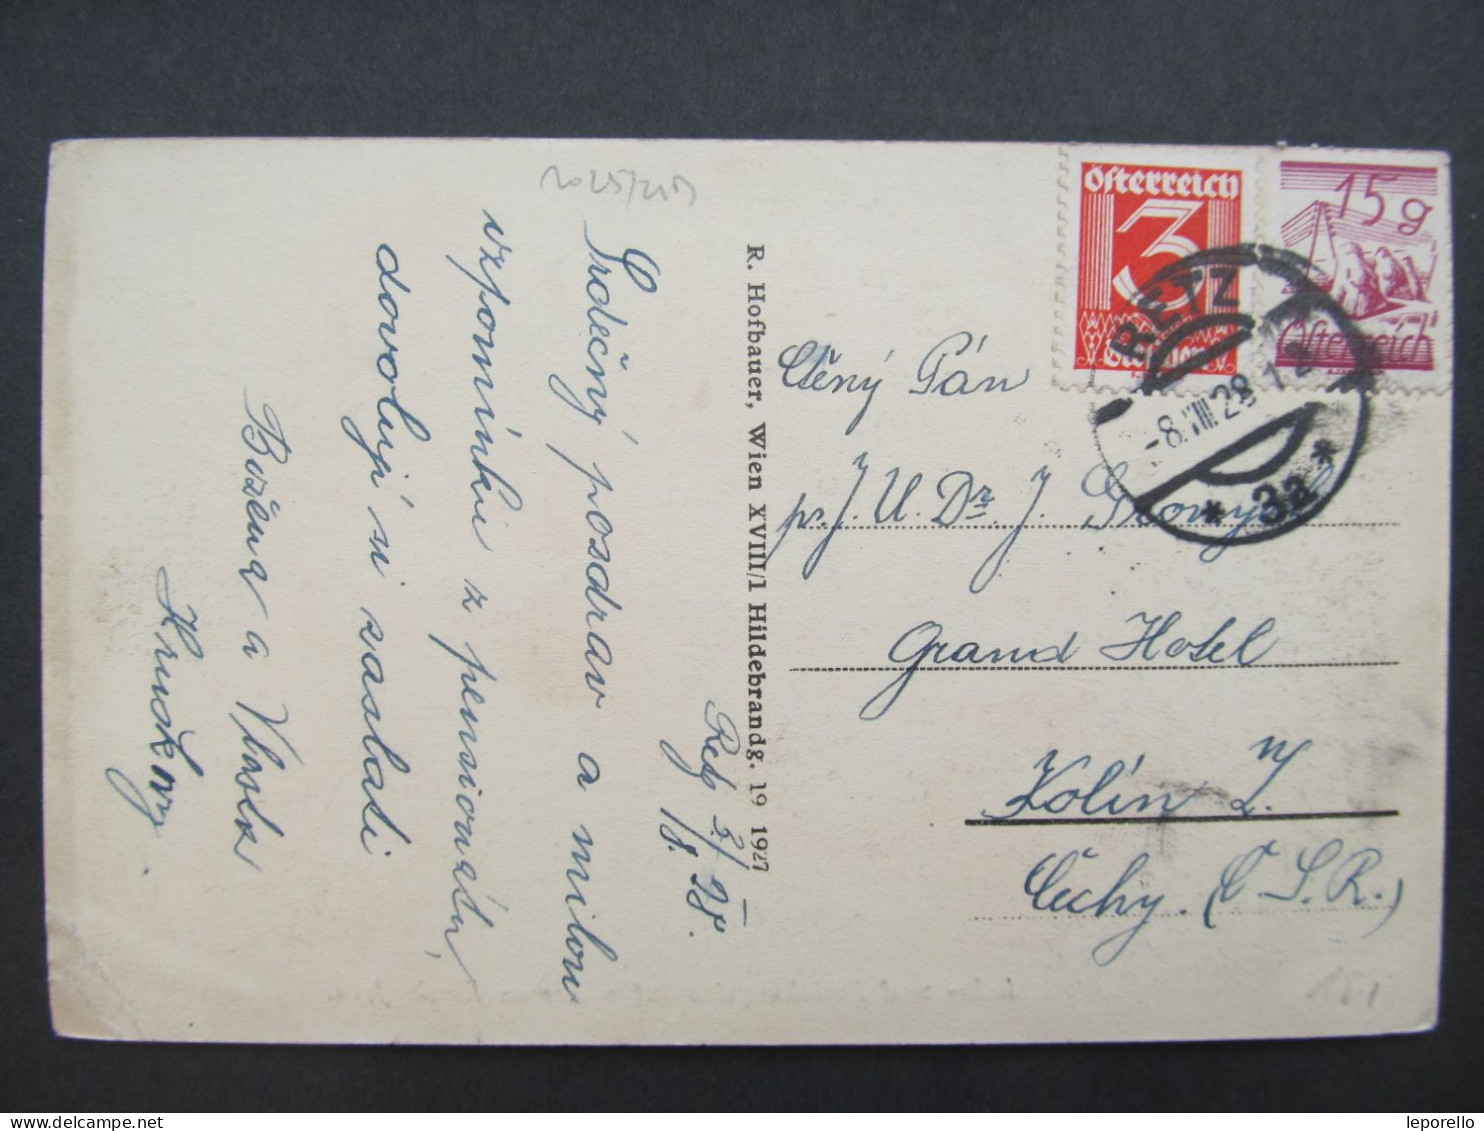 Srdečný pozdrav a milou
vzpomínku z pensionátu
dovolují si zaslati
Božena a Vlasta
Retz 3/8. 28.
R. Hofbauer, Wien XVIII/1 Hildebrandg. 19 1927
Österreich
3
Groschen
15 g
Österreich
RETZ
-8.VIII.28
* 3a *
Ctěný Pán
J. U. Dr. J.
Grand Hotel
Kolín n/L.
Čechy. (Č S. R.)
leporello